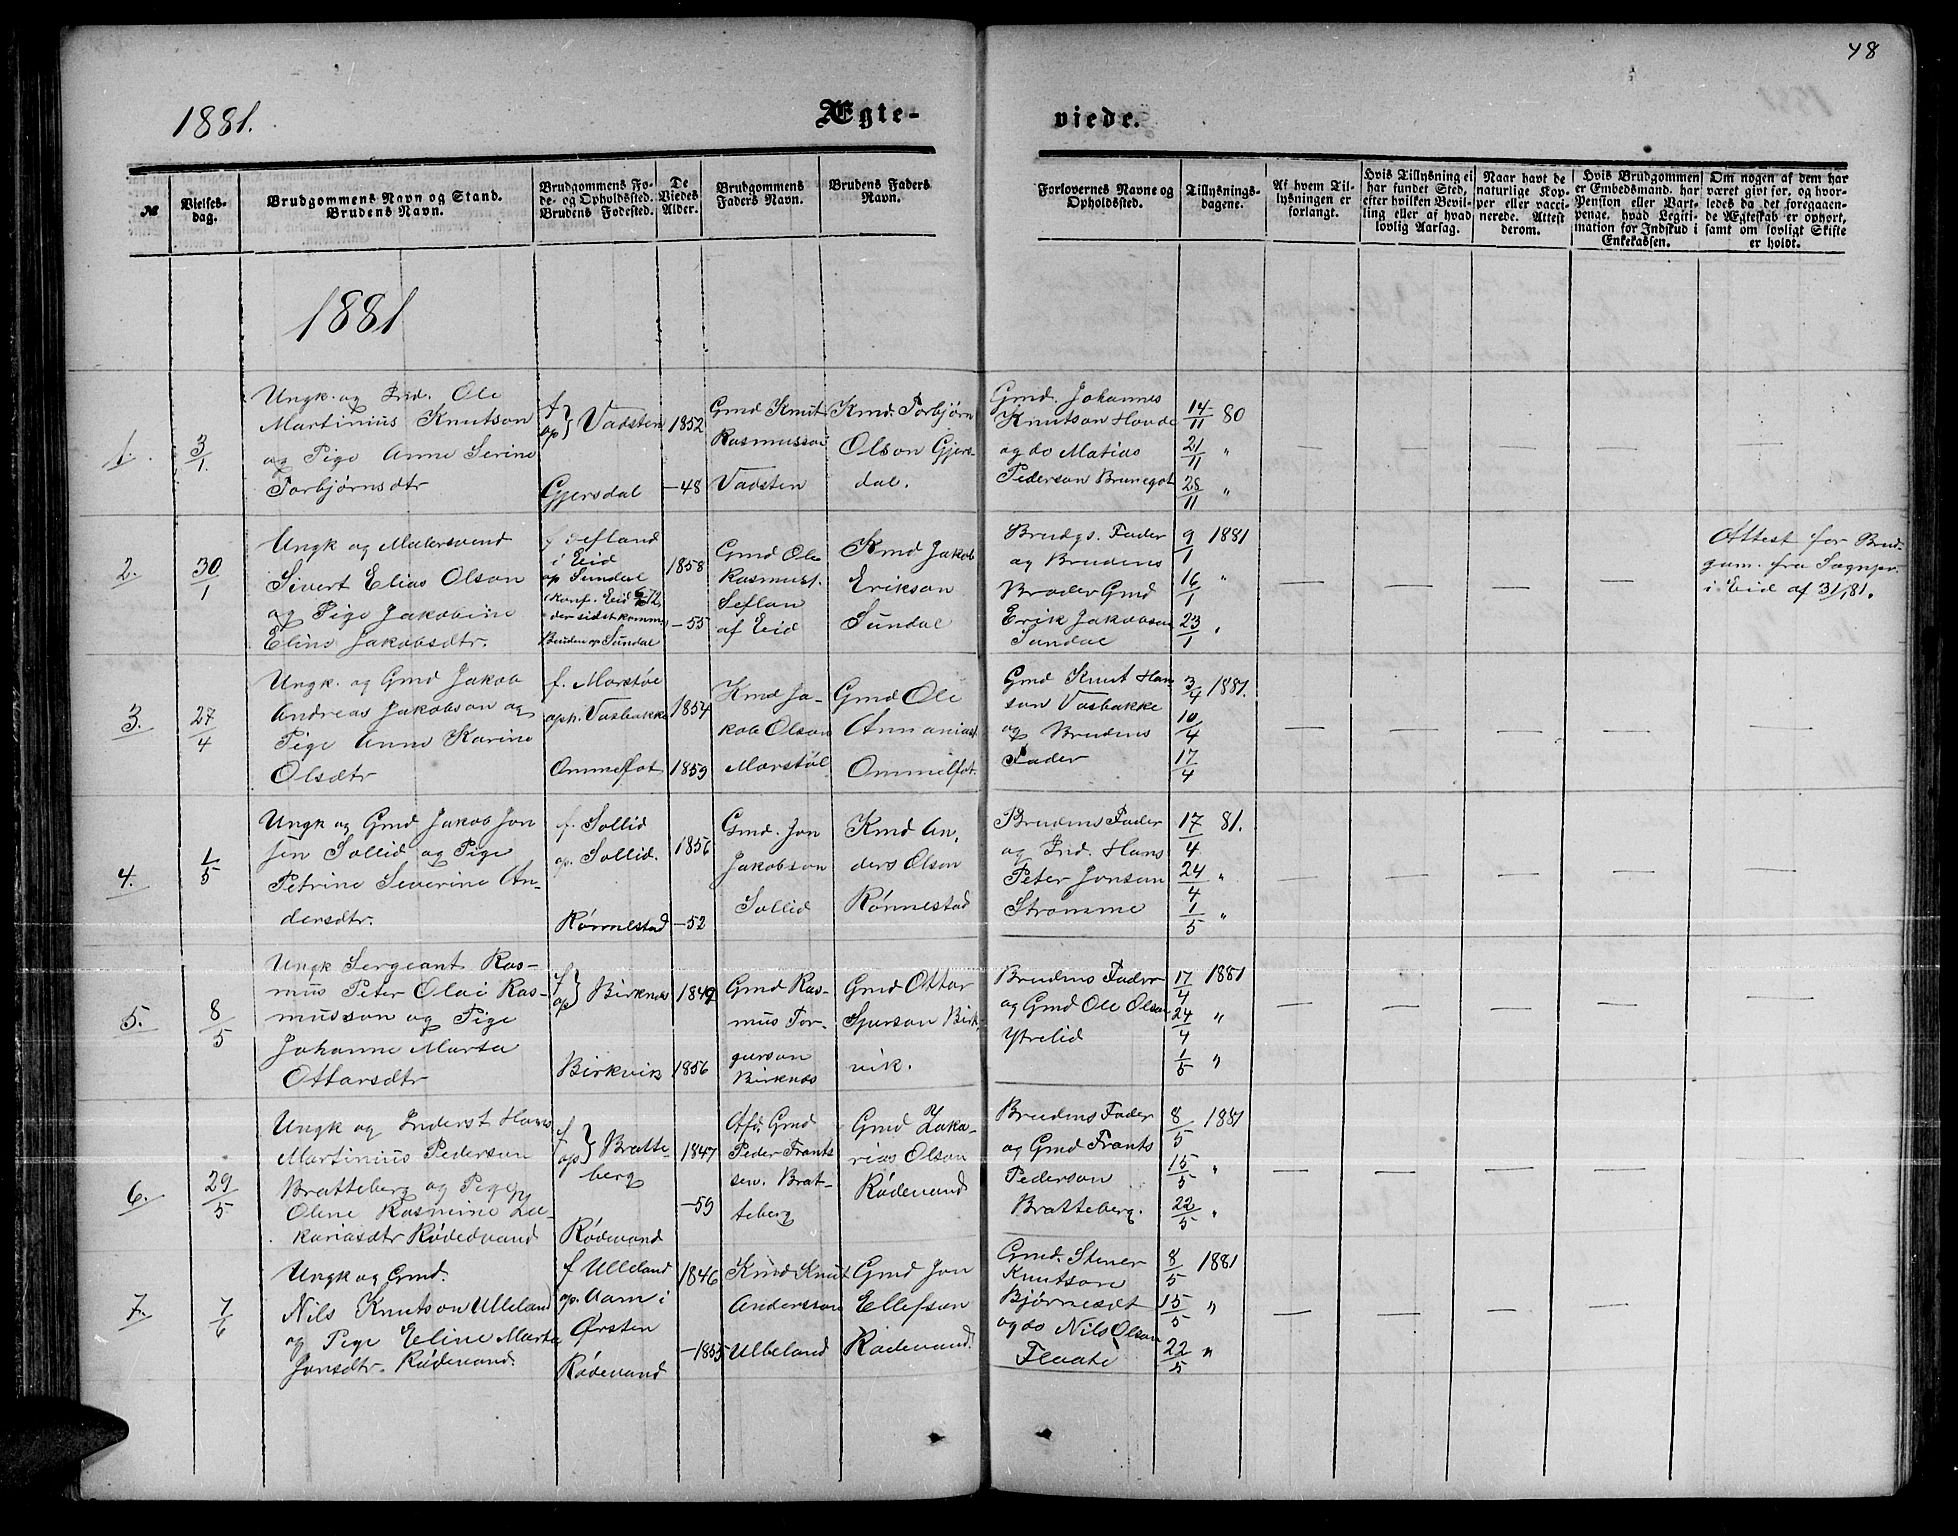 48
1881.
Ægte-
viede.
№
Vielses-
dag.
Brudgommens Navn og Stand.
Brudens Navn.
Brudgommens Fø-
de- og Opholdssted.
Brudens Fødested.
De
Viedes
Alder.
Brudgommens
Faders Navn.
Brudens Faders
Navn.
Forlovernes Navne og
Opholdssted.
Tillysnings-
dagene.
Af hvem Til-
lysningen er
forlangt.
Hvis Tillysning ei
har fundet Sted,
efter hvilken Bevil-
ling eller af hvad
lovlig Aarsag.
Naar havt de
naturlige Kop-
per eller vacci-
nerede. Attest
derom.
Hvis Brudgommen
er Embedsmand, har
Pension eller Vart-
penge, hvad Legiti-
mation for Indskud i
Enkekassen.
Om nogen af dem har
været gift før, og hvor-
ledes da det foregaaen-
de Ægteskab er ophørt,
samt om lovligt Skifte
er holdt.
1881
1.
3/1.
Ungk. og Ind. Ole
Martinius Knutson
og Pige Anne Serine
Torbjørnsdtr
f
op } Vadsten
Gjersdal
1852
-48
Gmd Knut
Rasmusson
Vadsten
Kmd. Torbjørn
Olson Gjers-
dal.
Gmd. Johannes
Knutson Hovde
og do Matias
Pederson Brunegot
14/11 80
21/11 "
28/11 "
2.
30/1
Ungk og Malersvend
Sivert Elias Olson
og Pige Jakobine
Eline Jakobsdtr.
f Sefland
i Eid
op Sundal
(Konf. Eid 6/10 72
der sidst komm.)
Bruden op Sundal
1858
-55
Gmd Ole
Rasmuss.
Seflan
af Eid
Kmd Jakob
Erikson
Sundal
Brudgs. Fader
og Brudens
Broder Gmd
Erik Jakobson
Sundal
9/1 1881
16/1 "
23/1 "
Attest for Brud-
gom. fra Sognepr.
i Eid af 3/1 81.
3.
27/4
Ungk. og Gmd Jakob
Andreas Jakobson og
Pige Anne Karine
Olsdtr
f. Marstøl
oph. Vasbakke
Ommelfot
1854
1859
Kmd Ja-
kob Olson
Marstøl
Gmd Ole
Annanias
Ommelfot
Gmd Knut Han-
son Vasbakke
og Brudens
Fader
3/4 1881.
10/4
17/4
4.
1/5
Ungk og Gmd Jakob Jon
sen Sollid og Pige
Petrine Severine An-
dersdtr.
f. Sollid
op. Sollid.
Rønnestad
1856
-52
Gmd. Jon
Jakobson
Sollid
Kmd An-
ders Olson
Rønnestad
Brudens Fader
og Ind. Hans
Peter Jonson
Strømme
17/4 81.
24/4 "
1/5 "
5.
8/5
Ungk Sergeant Ras-
mus Peter Olai Ras-
musson og Pige
Johanne Marta
Ottarsdtr
f
op } Birknes
Birkvik
1849
1856
Gmd Ras-
mus Tor-
gerson
Birknæs
Gmd Ottar
Sjurson Birk-
vik.
Brudens Fader
og Gmd Ole Olson
Ytrelid
17/4 1881
24/4 "
1/5 "
6.
29/5
Ungk og Inderst Hans
Martinius Pederson
Bratteberg og Pige
Oline Rasmine Za-
kariasdtr Rødevand
f
op } Bratte-
berg
Rødevand
1847
-59
Afd. Gmd
Peder Frants
sen. Brat-
teberg
Gmd Zaka-
rias Olson
Rødevand
Brudens Fader
og Gmd Frants
Pederson
Bratteberg.
8/5 1881
15/5 "
22/5 "
7.
7/6
Ungk og Gmd.
Nils Knutson Ulleland
og Pige Eline Marta
Jonsdtr. Rødevand.
f Ulleland
op. Aam i
Ørsten
Rødevand
1846
-1855
Kmd Knut
Anderson
Ulleland
Gmd Jon
Ellefson
Rødevand.
Gmd. Stener
Knutson
Bjørneset
og do Nils Olson
Flaate
8/5 1881
15/5 "
22/5 "